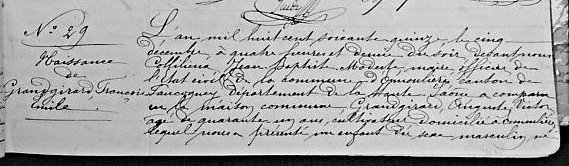 No. 29
Naissance
de
Grandgirard François
Emile
L'an mil huit cent soixante quinze le cinq
decembre à quatre heures et demie du soir, devant nous
Jean Baptiste maire officier de
l'état civil de la commune d'Ormoiche canton de
Saucogney département de la Haute Saône a comparu
en la maison commune, Grandgirard Auguste Victor
agé de quarante un ans, cultivateur domicilié à
lequel nous a présenté un enfant du sexe masculin, né